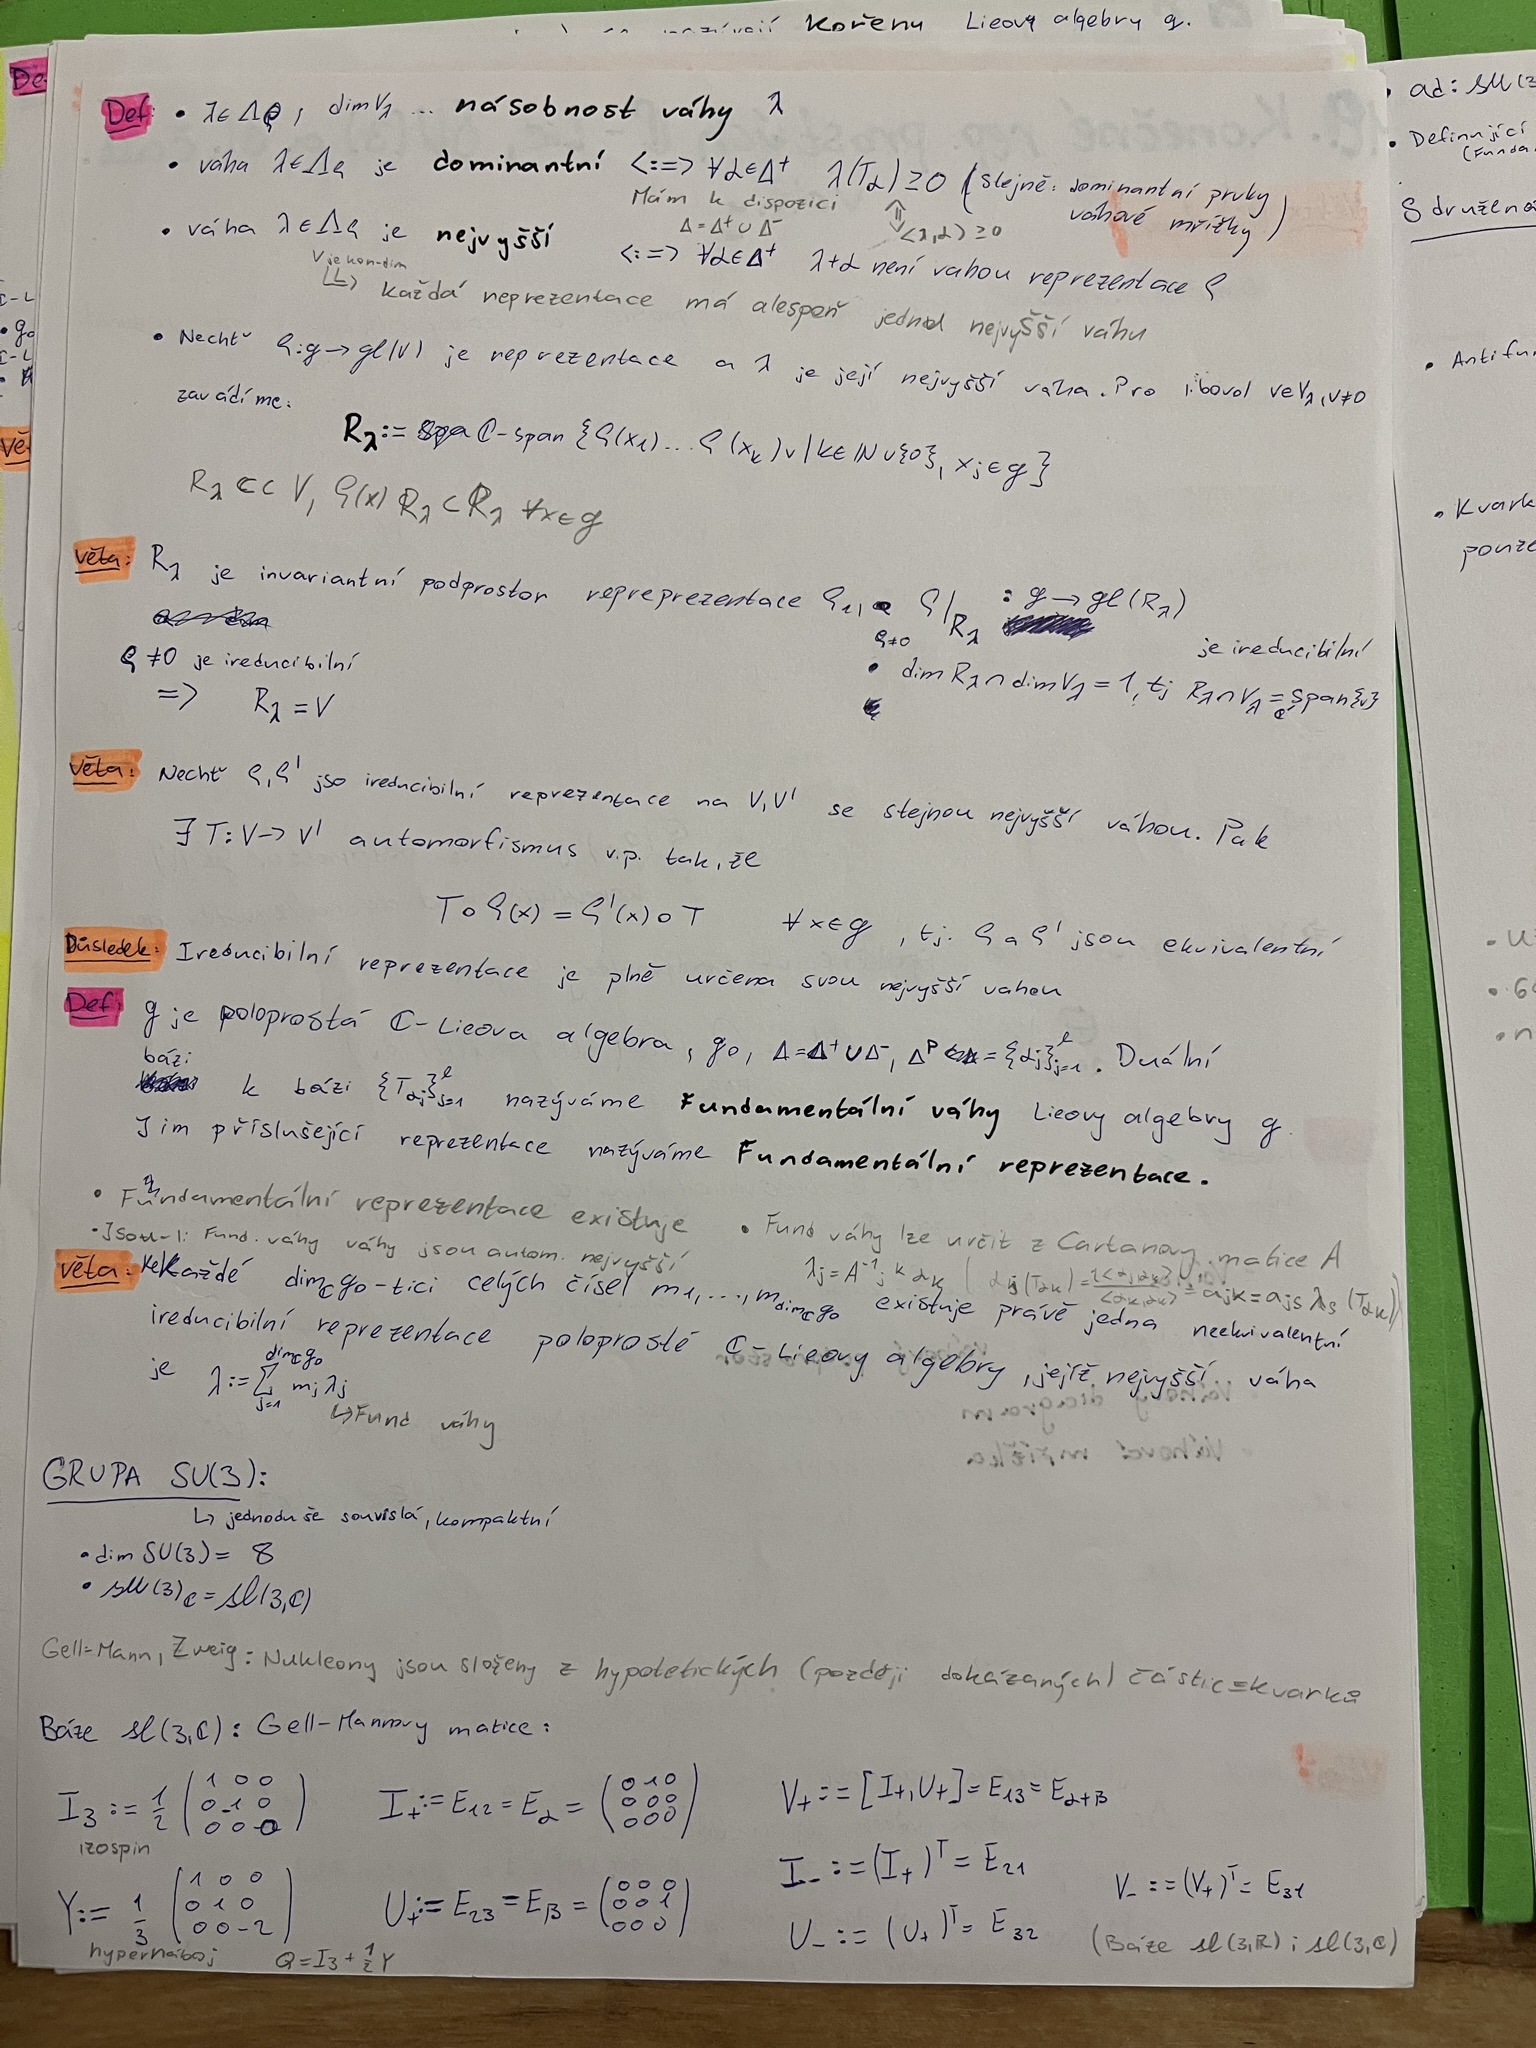 Kořenu Lieovy algebry g.
Def: • λ∈Δρ, dim Vλ ... násobnost váhy λ
• váha λ∈Δρ je dominantní <:=> ∀α∈Δ⁺ λ(Tα) ≥ 0 (stejně: dominantní prvky váhové mřížky)
Mám k dispozici
Δ = Δ⁺ ∪ Δ⁻
⇕ <λ,α> ≥ 0
• váha λ∈Δρ je nejvyšší <:=> ∀α∈Δ⁺ λ+α není vahou reprezentace ρ
V je kon-dim
↳ každá reprezentace má alespoň jednu nejvyšší váhu
• Nechť ρ: g → gl(V) je reprezentace a λ je její nejvyšší váha. Pro libovol v∈Vλ, v≠0
zavádíme:
Rλ := ℂ-span {ρ(x₁)...ρ(xₖ)v | k∈ℕ∪{0}, xⱼ∈g}
Rλ ⊂⊂ V, ρ(x) Rλ ⊂ Rλ ∀x∈g
Věta: Rλ je invariantní podprostor repreprezentace ρ, • ρ|Rλ : g → gl(Rλ)
ρ≠0 je ireducibilní
ρ ≠ 0 je ireducibilní
• dim Rλ ∩ dim Vλ = 1, tj Rλ ∩ Vλ = span_ℂ{v}
=> Rλ = V
Věta: Nechť ρ, ρ' jso ireducibilní reprezentace na V, V' se stejnou nejvyšší váhou. Pak
∃ T: V → V' automorfismus v.p. tak, že
T ∘ ρ(x) = ρ'(x) ∘ T ∀x∈g, tj. ρ a ρ' jsou ekvivalentní
Důsledek: Ireducibilní reprezentace je plně určena svou nejvyšší vahou
Def: g je poloprostá ℂ-Lieova algebra, g₀, Δ = Δ⁺ ∪ Δ⁻, Δᵖ = {αⱼ}ˡⱼ₌₁. Duální
bázi k bázi {Tαⱼ}ˡⱼ₌₁ nazýváme Fundamentální váhy Lieovy algebry g.
Jim příslušející reprezentace nazýváme Fundamentální reprezentace.
• Fundamentální reprezentace existuje
• Fund váhy lze určit z Cartanovy matice A
• Jsou-li: Fund. váhy váhy jsou autom. nejvyšší
λⱼ = A⁻¹ⱼᵏ αₖ (αⱼ(Tαₖ) = 2<αⱼ,αₖ>/<αₖ,αₖ> = aⱼₖ = aⱼₛ λₛ(Tαₖ))
Věta: Ke každé dim_ℂ g₀-tici celých čísel m₁,...,m_dim_ℂ g₀ existuje právě jedna neekvivalentní
ireducibilní reprezentace poloprosté ℂ-Lieovy algebry, jejíž nejvyšší váha
je λ := Σ_{j=1}^{dim_ℂ g₀} mⱼ λⱼ
↳ Fund váhy
GRUPA SU(3):
↳ jednoduše souvislá, kompaktní
• dim SU(3) = 8
• su(3)_ℂ = sl(3,ℂ)
Gell-Mann, Zweig: Nukleony jsou složeny z hypotetických (později dokázaných) částic = kvarků
Báze sl(3,ℂ): Gell-Mannovy matice:
I₃ := 1/2 (1 0 0 / 0 -1 0 / 0 0 0)
izospin
I₊ := E₁₂ = Eα = (0 1 0 / 0 0 0 / 0 0 0)
V₊ := [I₊, U₊] = E₁₃ = Eα+β
I₋ := (I₊)ᵀ = E₂₁
V₋ := (V₊)ᵀ = E₃₁
Y := 1/3 (1 0 0 / 0 1 0 / 0 0 -2)
hypernáboj
U₊ := E₂₃ = Eβ = (0 0 0 / 0 0 1 / 0 0 0)
U₋ := (U₊)ᵀ = E₃₂
(Báze sl(3,ℝ) i sl(3,ℂ)
Q = I₃ + 1/2 Y
• ad:
• Definující
(Funda
Sdružená
• Antifu
• Kvark